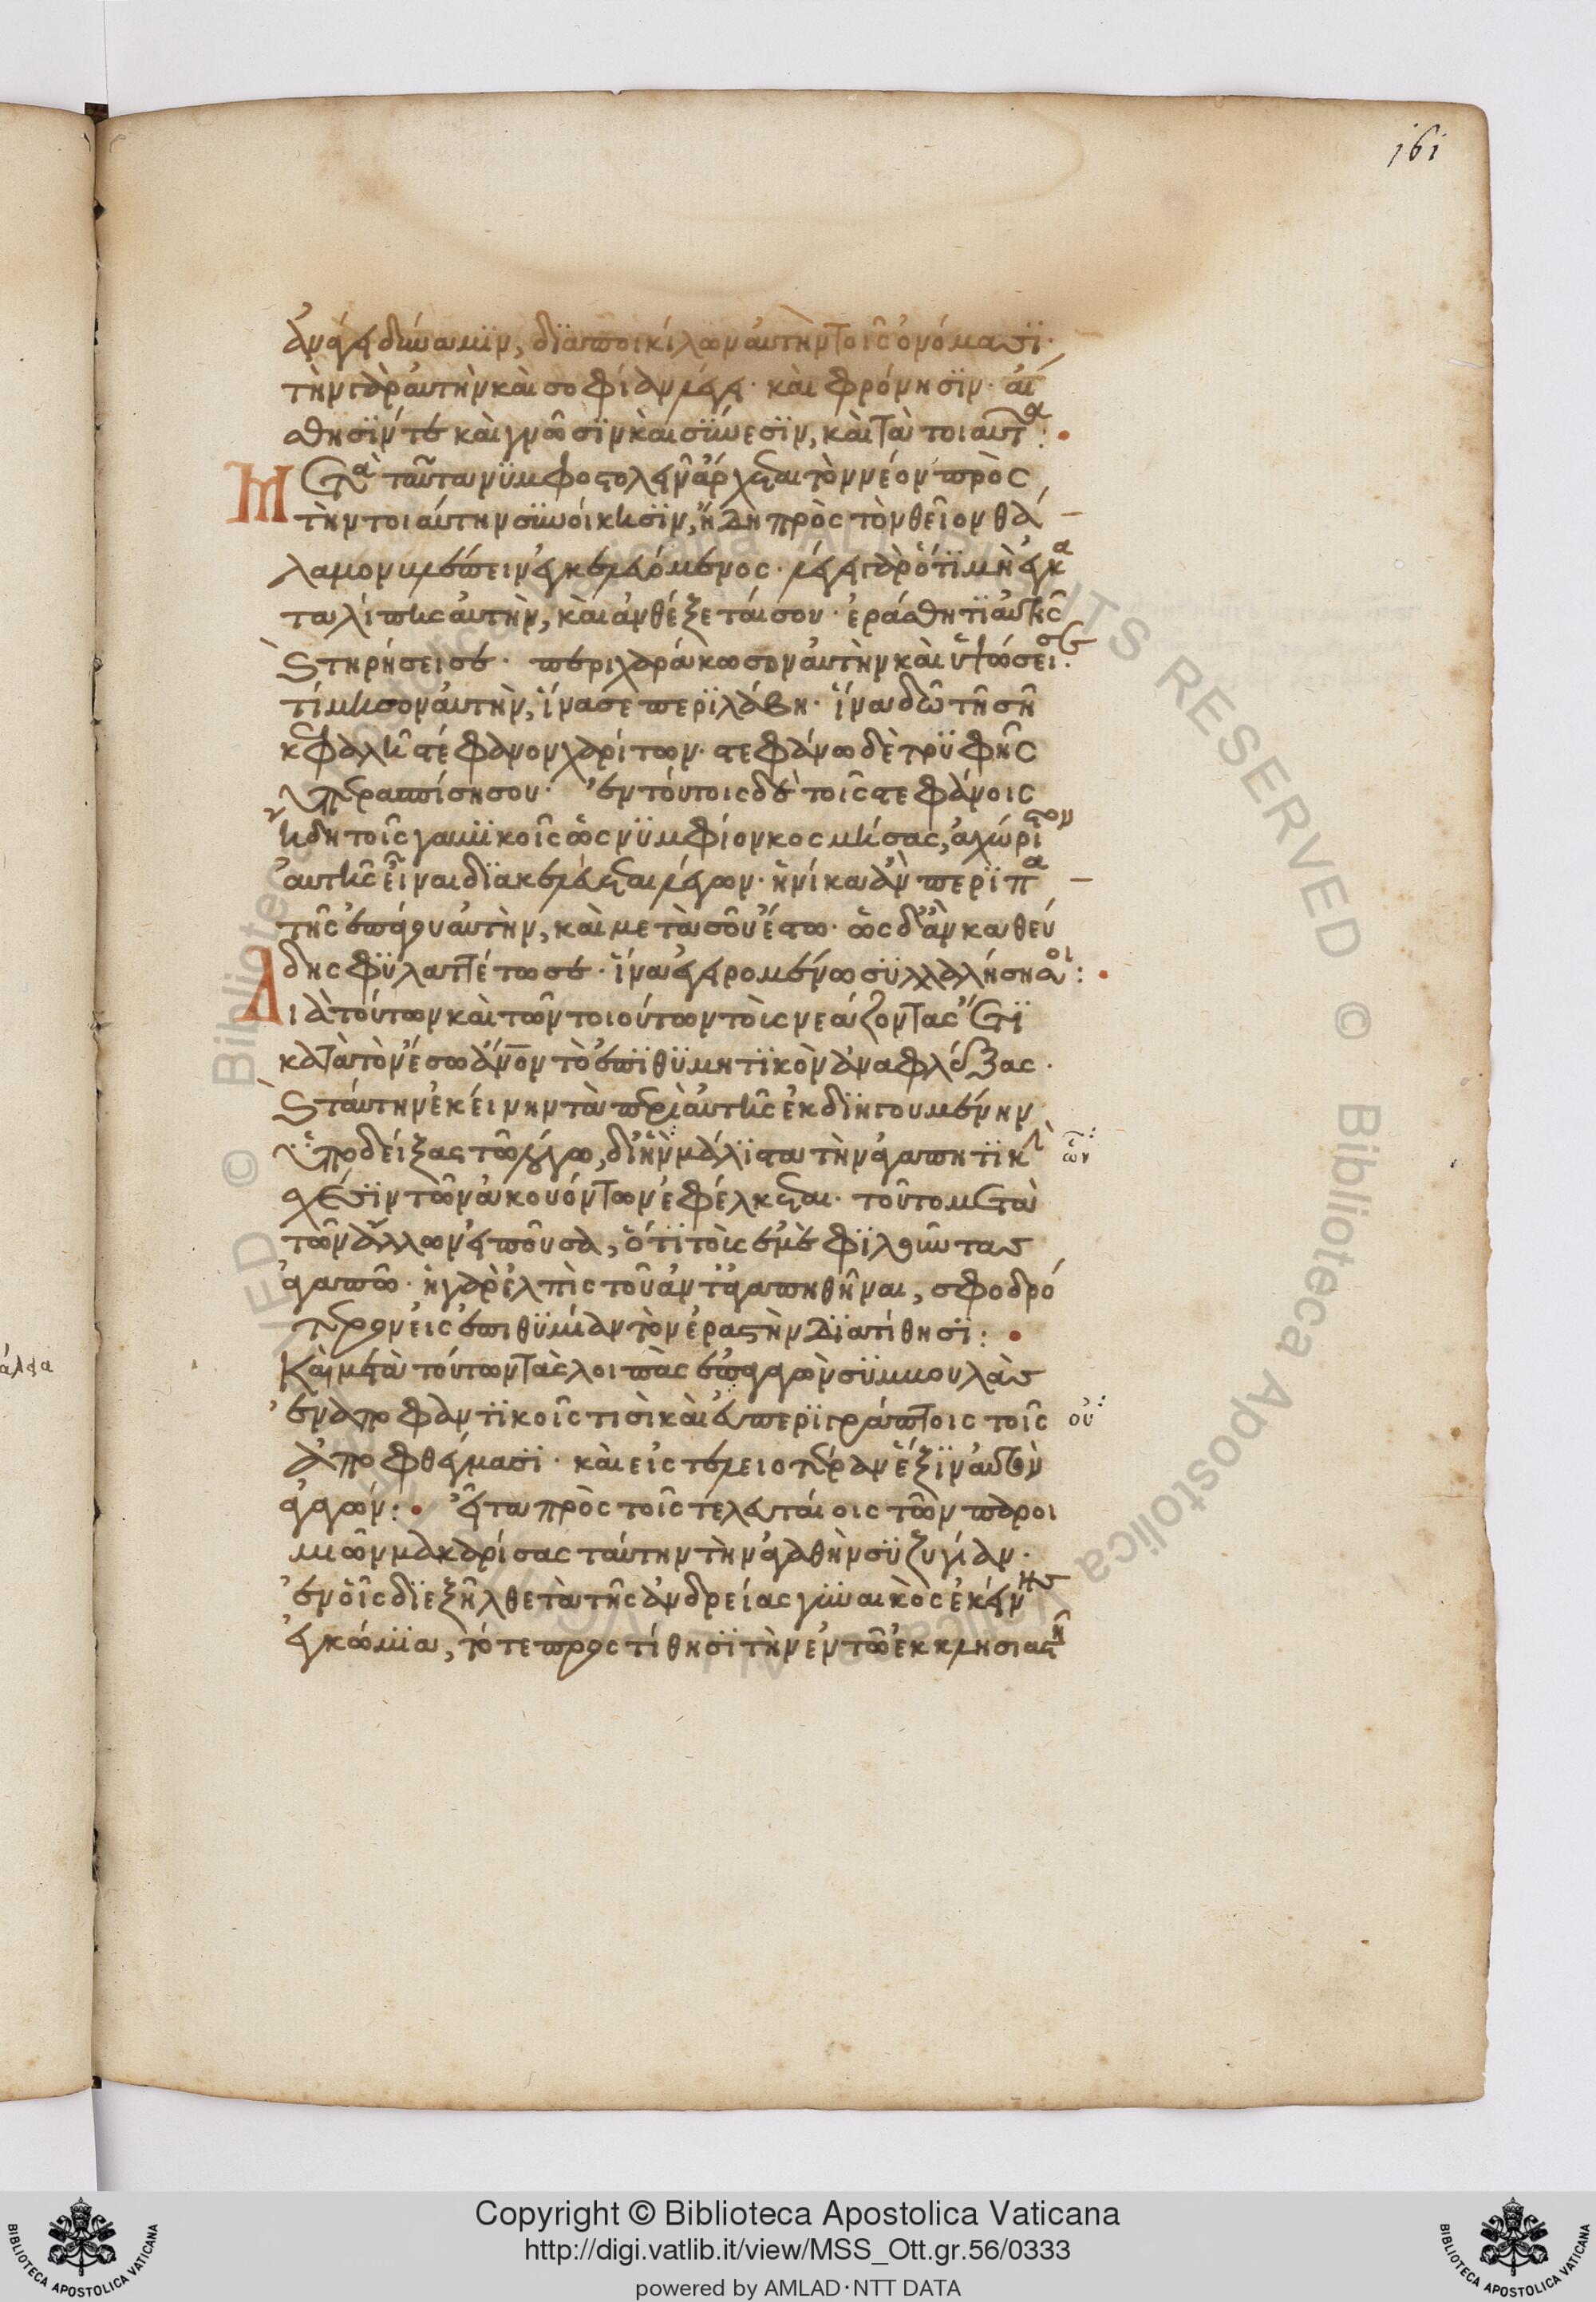 ἀνάγει δύναμϊν, δϊαποικίλων αὐτὴν τοῖς ὀνόμασϊ·
τὴν γὰρ αὐτὴν καὶ σοφίαν λέγει· καὶ φρόνησϊν· αἴ
σθησΐν τε καὶ γνῶσϊν καὶ σύνεσϊν, καὶ τὰ τοιαῦτα:
Μετὰ ταῦτα νϋμφοστολεῖν ἄρχεται τὸν νέον πρὸς
τὴν τοιαύτην συνοίκησϊν, ἤδη πρὸς τὸν θεῖον θά
λαμον βλέπειν ἐγκελευόμενος· λέγει γὰρ ὅτϊ μὴ ἐγκα
ταλίπης αὐτὴν, καὶ ἀνθέξεταί σου· ἐράσθητϊ αὐτῆς
καὶ τηρήσει σε· περιχαράκωσον αὐτὴν καὶ ὑψώσει σε·
τίμησον αὐτὴν, ἵνα σε περϊλάβη· ἵνα δῶ τῆ σῆ
κεφαλῆ στέφανον χαρίτων· στεφάνω δὲ τρϋφῆς
ὑπερασπίση σου· ἐν τούτοις δὲ τοῖς στεφάνοις
ἤδη τοῖς γαμϊκοῖς ὡς νϋμφίον κοσμήσας, ἀχώριστον
αὐτῆς εἶναι δϊακελεύεται λέγων· ἡνίκα ἂν περϊπα
τῆς ἐπάγου αὐτὴν, καὶ μετὰ σοῦ ἔστω· ὡς δ' ἂν καθεύ
δης φϋλαττέτω σε· ἵνα ἐγειρομένω σϋλλαλήση σοι:
Διὰ τούτων καὶ τῶν τοιούτων τοὶς νεάζοντας ἔτϊ
κατὰ τὸν ἔσω ἄνον τὸ ἐπϊθϋμητϊκὸν ἀναφλέξας·
καὶ ταύτην ἐκείνην τὰ περὶ αὐτῆς ἐκδϊηγουμένην
ὑποδείξας τῶ λόγω, δι' ἣν μάλϊστα τὴν ἀγαπητϊκὴν
ὧν
σχέσϊν τῶν ἀκουόντων ἐφέλκεται· τοῦτο μετὰ
τῶν ἄλλων εἰποῦσα, ὅτϊ τοὶς ἐμὲ φϊλοῦντας
ἀγαπῶ· ἡ γὰρ ἐλπὶς τοῦ ἀνταγαπηθῆναι, σφοδρό
τερον εἰς ἐπιθϋμίαν τὸν ἐραστὴν δϊατίθησϊ:
Καὶ μετὰ τούτων τὰς λοιπὰς ἐπαγαγὼν σϋμβουλὰς
ἐν ἀποφαντϊκοῖς τισὶ καὶ εὐπερϊγράπτοις τοῖς
οὐ
ἀποφθέγμασϊ· καὶ εἰς τελειοτέραν ἕξϊν αὐτὸν
ἀγαγών: εἶτα πρὸς τοῖς τελευταίοις τῶν παροι
μιῶν μακαρίσας ταύτην τὴν ἀγαθὴν σϋζυγίαν·
ἐν οἷς δϊεξῆλθε τὰ τῆς ἀνδρείας γυναικὸς ἐκείνης
ἐγκώμϊα, τότε προστίθησϊ τὴν ἐν τῶ ἐκκλησιαστῆ
161
Copyright © Biblioteca Apostolica Vaticana
http://digi.vatlib.it/view/MSS_Ott.gr.56/0333
powered by AMLAD·NTT DATA